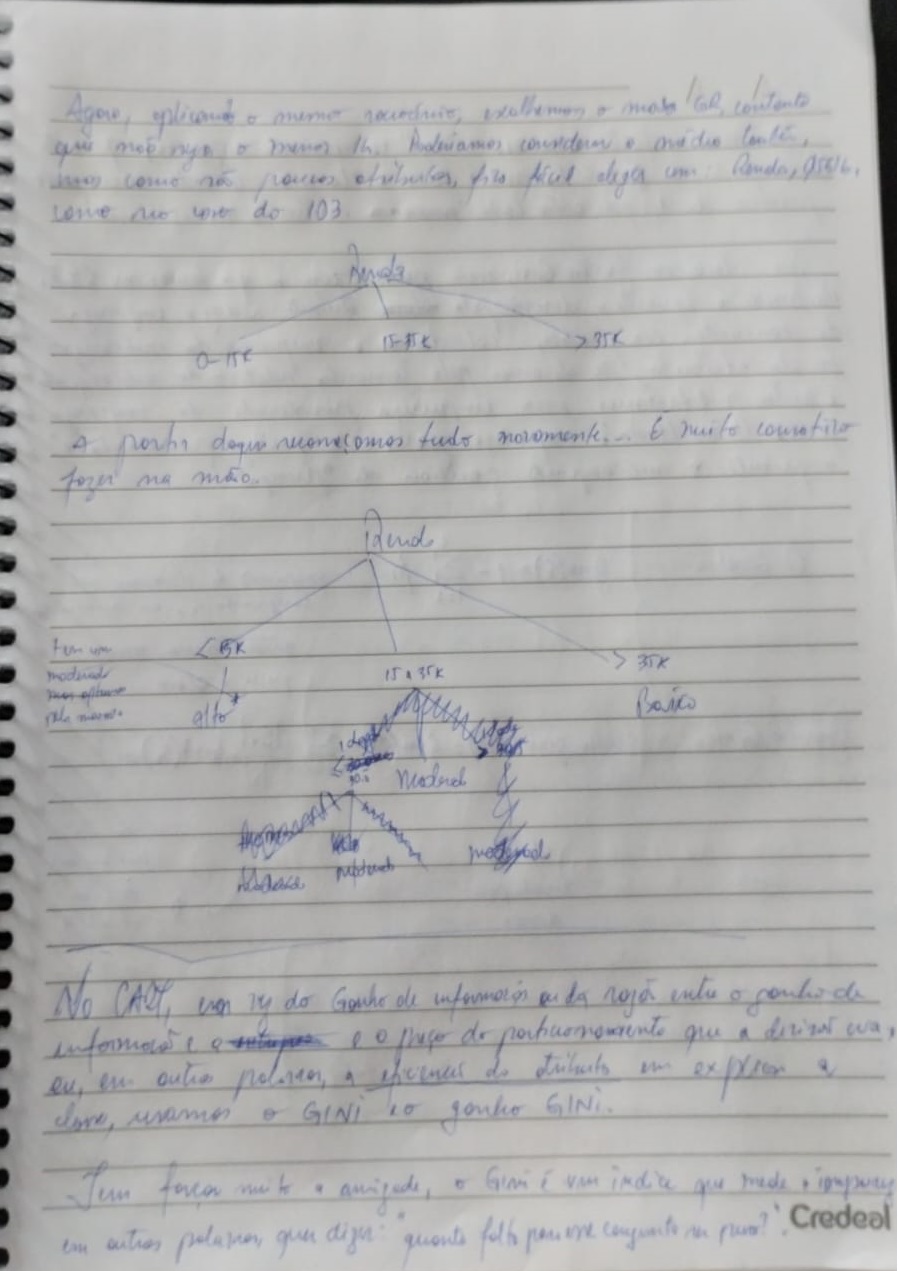 Agora, aplicando o mesmo raciocínio, escolhemos o maior GR, contanto
que não seja o menor IG. Poderíamos considerar a média também,
mas como são poucos atributos, fica fácil eleger com: Renda,
como no caso do ID3.
Renda
0-15K
15-35K
> 35K
A partir daqui recomeçamos tudo novamente... É muito cansativo
fazer na mão..
Renda
< 15K
15 a 35K
> 35K
tem um
moderado
pela maioria
alto*
Baixo
Moderado
No CART, em vez do Ganho de informação ou da razão entre o ganho de
informação e o e o preço do particionamento que a divisão
ou, em outras palavras, a eficiência do atributo em explicar a
classe, usamos o GINI e o ganho GINI.
Sem forçar muito a amizade, o Gini é um índice que mede a impureza
em outras palavras, quer dizer: "quanto falta para esse conjunto ser puro?".
Credeal